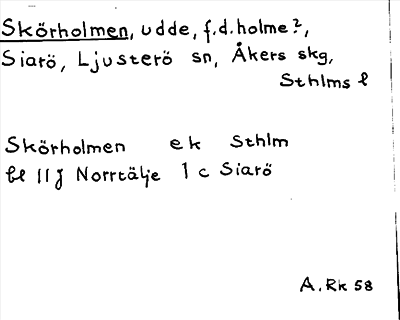 Skörholmen, udde, f.d. holme?,
Siarö, Ljusterö sn, Åkers skg,
Sthlms l
Skörholmen ek Sthlm
bl 11 J Norrtälje 1 c Siarö
A. Rk 58